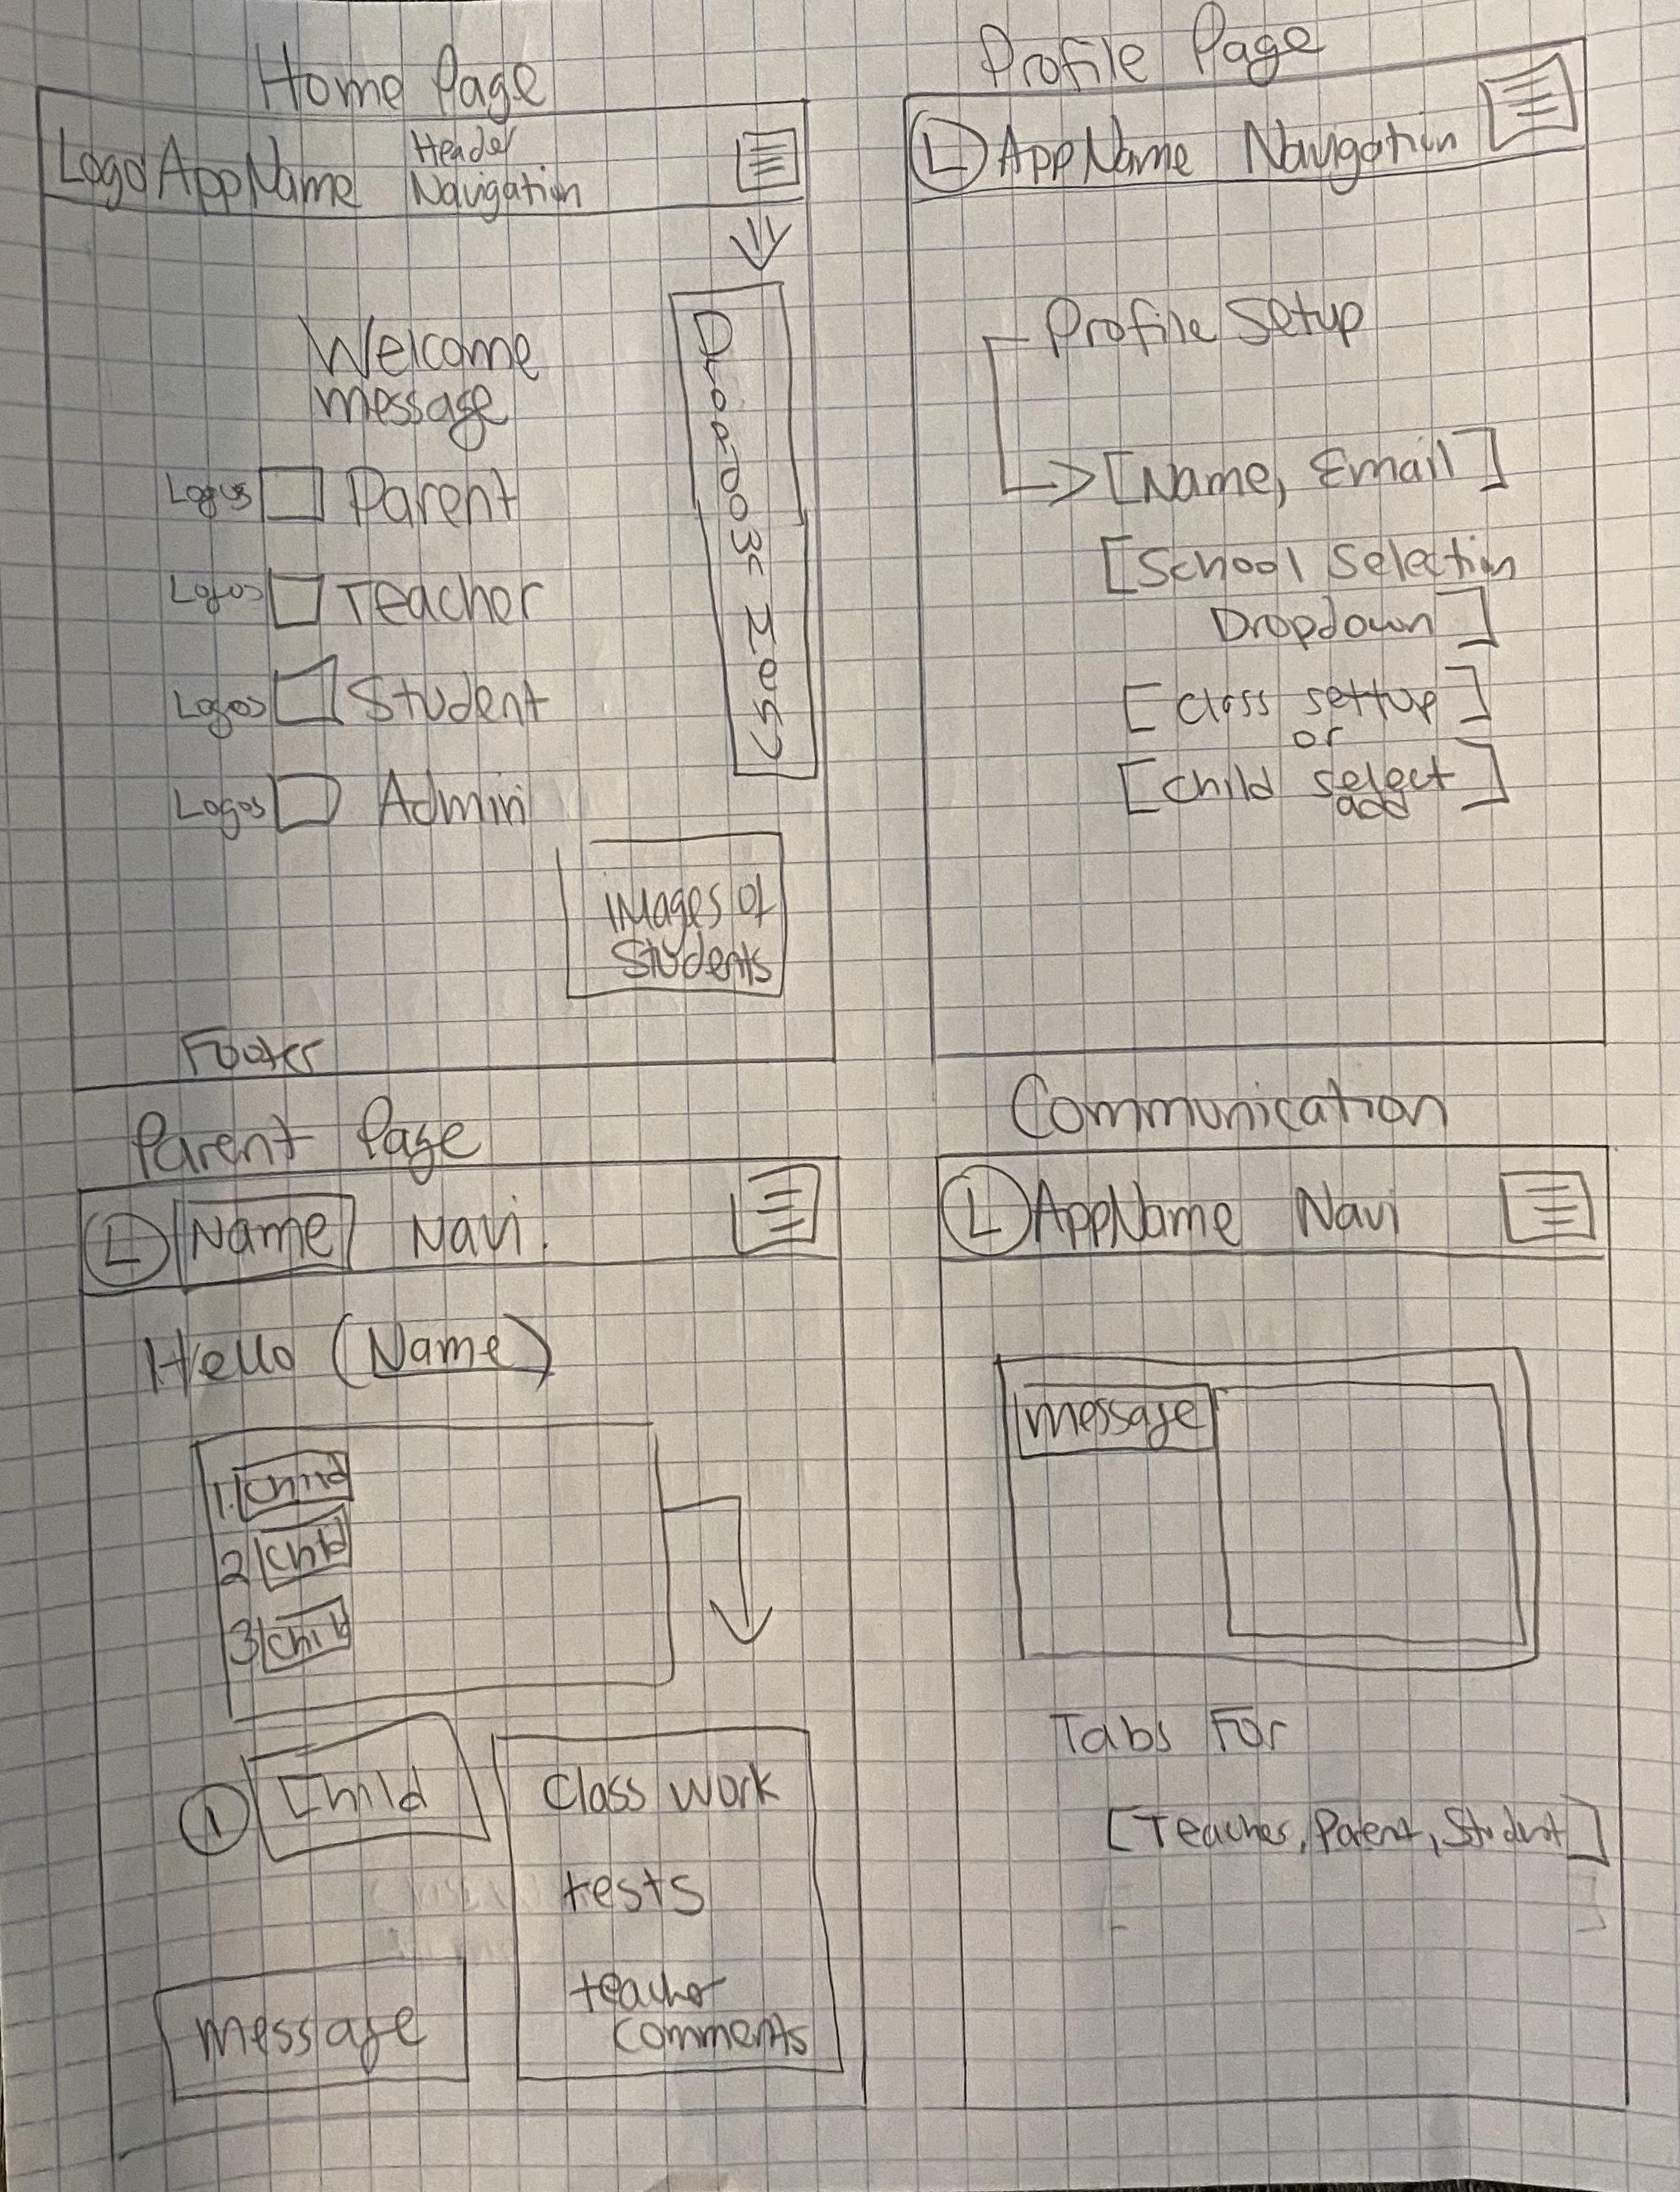 Home Page
Logo AppName Header Navigation
Welcome
message
Dropdown Menu
Logos Parent
Logos Teacher
Logos Student
Logos Admin
iMages of
Students
Footer
Profile Page
L AppName Navigation
Profile Setup
[Name, Email]
[School Selection
Dropdown]
[Class settup]
or
[Child select
add]
Parent Page
L Name Navi.
Hello (Name)
1. Child
2 Child
3 Child
1 Child
Class work
tests
teacher
comments
message
Communication
L AppName Navi
message
Tabs For
[Teacher, Parent, Student]